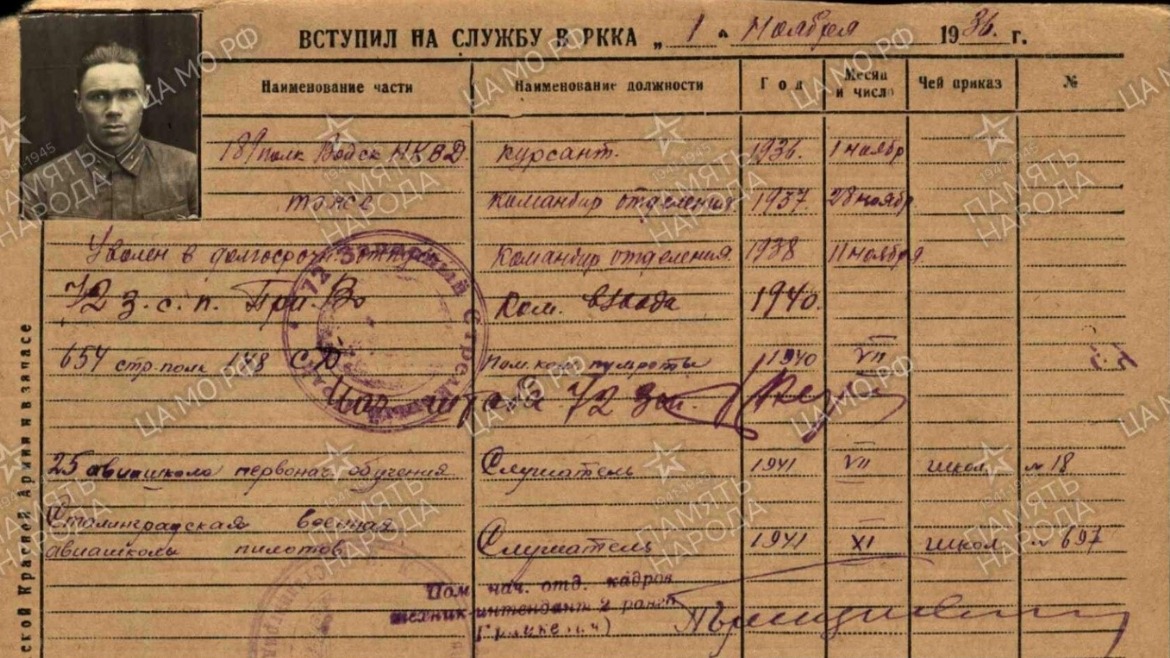 ВСТУПИЛ НА СЛУЖБУ В РККА „ 1 " Ноября 1936 г.
Наименование части Наименование должности Год Месяц и число Чей приказ №
189 полк Войск НКВД курсант. 1936. 1 ноябр
тоже командир отделения 1937 28 ноября
Уволен в долгосроч. командир отделения 1938 11 ноября
72 з.с.п. При.Во Ком. взвода 1940.
654 стр. полк 148 СД Пом. ком. пульроты 1940 VII
Нач. штаба 72 зсп.
25 авиашкола первонач. обучения Слушатель 1941 VII школ. № 18
Сталинградская военная
авиашкола пилотов Слушатель 1941 XI школ № 697
Пом. нач. отд. кадров
техник-интендант 2 ранга
ской Красной Армии и в запасе
ЦА МО РФ
ПАМЯТЬ
НАРОДА
1941-1945